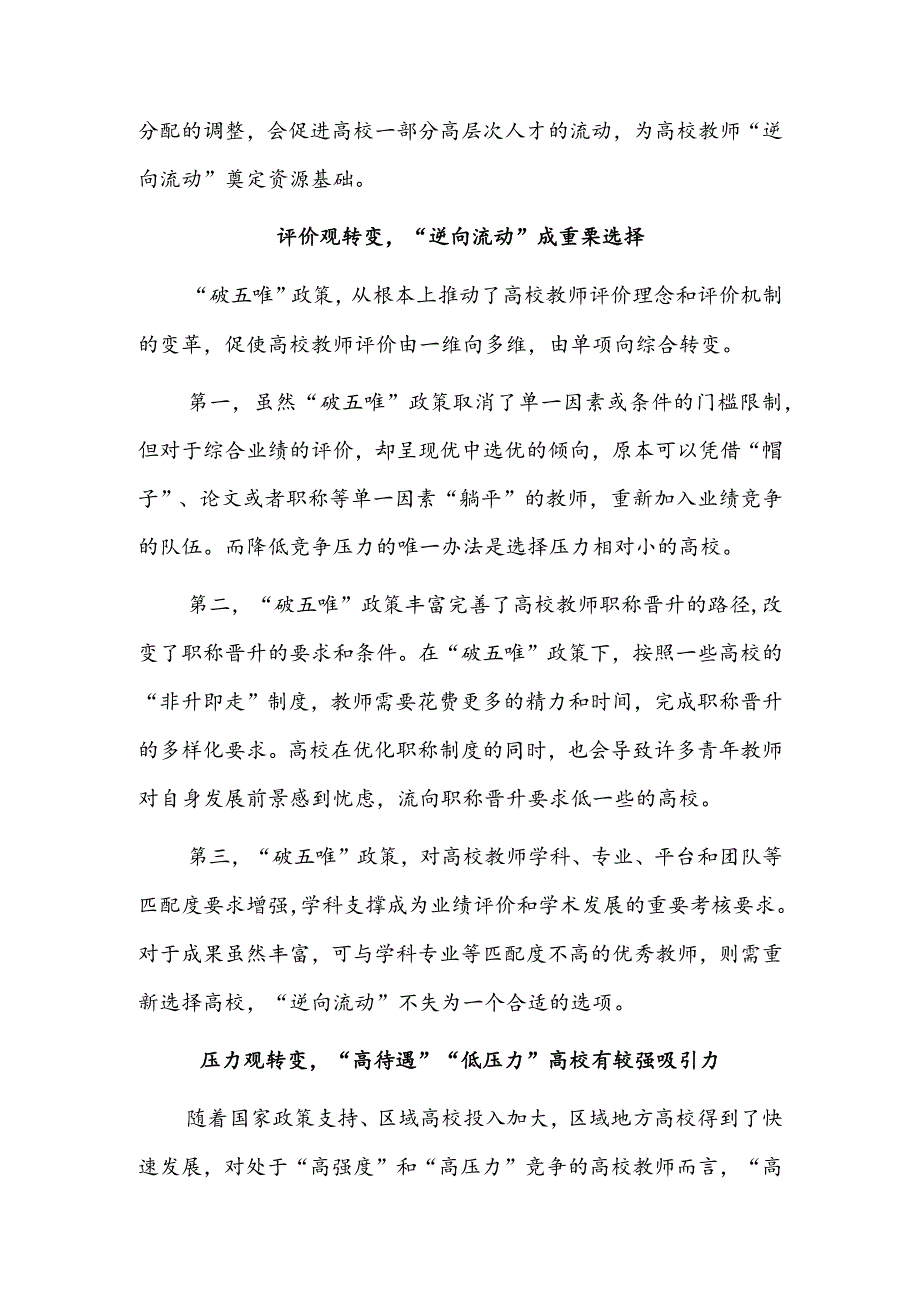 分配的调整，会促进高校一部分高层次人才的流动，为高校教师“逆
向流动”奠定资源基础。
评价观转变，“逆向流动”成重栗选择
“破五唯”政策，从根本上推动了高校教师评价理念和评价机制
的变革，促使高校教师评价由一维向多维，由单项向综合转变。
第一，虽然“破五唯”政策取消了单一因素或条件的门槛限制，
但对于综合业绩的评价，却呈现优中选优的倾向，原本可以凭借“帽
子”、论文或者职称等单一因素“躺平”的教师，重新加入业绩竞争
的队伍。而降低竞争压力的唯一办法是选择压力相对小的高校。
第二，“破五唯”政策丰富完善了高校教师职称晋升的路径,改
变了职称晋升的要求和条件。在“破五唯”政策下，按照一些高校的
“非升即走”制度，教师需要花费更多的精力和时间，完成职称晋升
的多样化要求。高校在优化职称制度的同时，也会导致许多青年教师
对自身发展前景感到忧虑，流向职称晋升要求低一些的高校。
第三，“破五唯”政策，对高校教师学科、专业、平台和团队等
匹配度要求增强,学科支撑成为业绩评价和学术发展的重要考核要求。
对于成果虽然丰富，可与学科专业等匹配度不高的优秀教师，则需重
新选择高校，“逆向流动”不失为一个合适的选项。
压力观转变，“高待遇”“低压力”高校有较强吸引力
随着国家政策支持、区域高校投入加大，区域地方高校得到了快
速发展，对处于“高强度”和“高压力”竞争的高校教师而言，“高